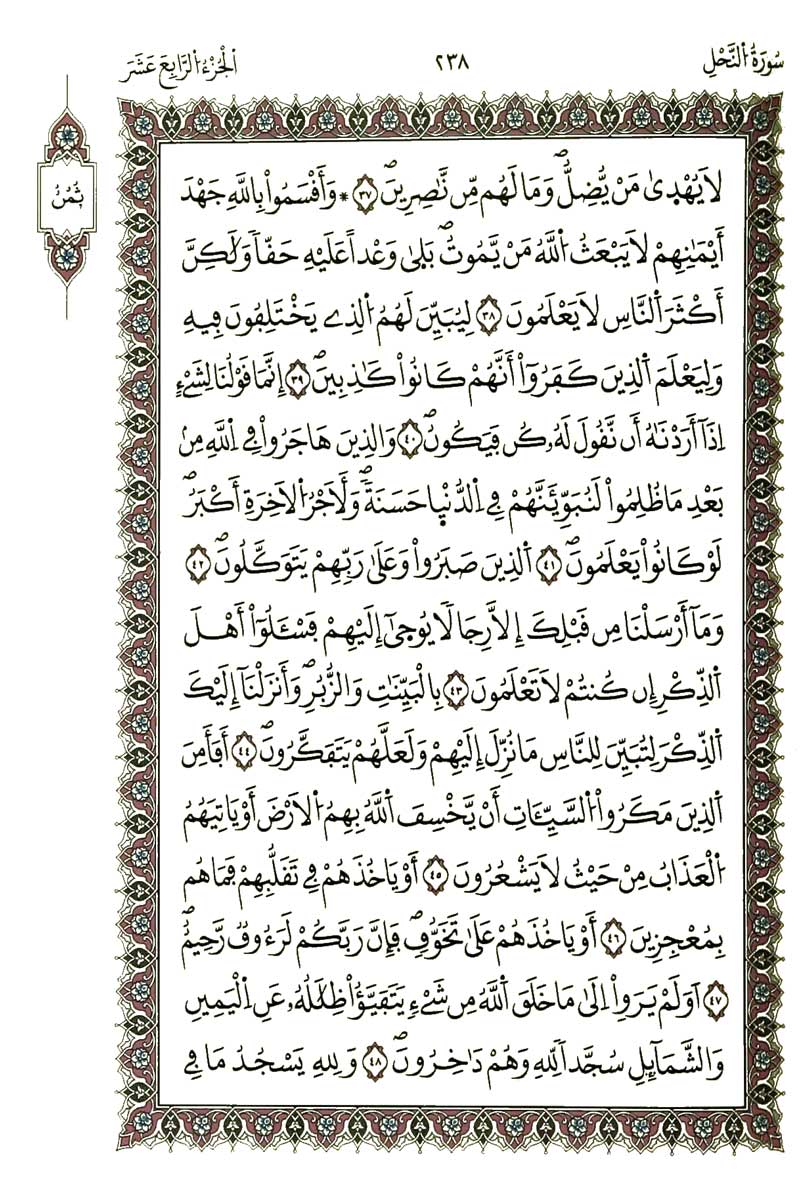 سُورَةُ النَّحْلِ
٢٣٨
الْجُزْءُ الرَّابِعَ عَشَرَ
ثُمُنُ
لَا يُهْدٜىٰ مَنْ يُّضِلُّۖ وَمَا لَهُم مِّن نَّٰصِرِينَۖ ٣٧ * وَأَقْسَمُواْ بِاللَّهِ جَهْدَ
أَيْمَٰنِهِمْ لَا يَبْعَثُ اُ۬للَّهُ مَنْ يَّمُوتُۖ بَلٜىٰ وَعْداً عَلَيْهِ حَقّاٗ وَلَٰكِنَّ
أَكْثَرَ اَ۬لنَّاسِ لَا يَعْلَمُونَ ٣٨ لِيُبَيِّنَ لَهُمُ اُ۬لذِے يَخْتَلِفُونَ فِيهِ
وَلِيَعْلَمَ اَ۬لذِينَ كَفَرُوٓاْ أَنَّهُمْ كَانُواْ كَٰذِبِينَۖ ٣٩ إِنَّمَا قَوْلُنَا لِشَےْءٍ
اِذَآ أَرَدْنَٰهُ أَن نَّقُولَ لَهُۥ كُن فَيَكُونُۖ ٤٠ وَالذِينَ هَاجَرُواْ فِے اِ۬للَّهِ مِنۢ
بَعْدِ مَا ظُلِمُواْ لَنُبَوِّئَنَّهُمْ فِے اِ۬لدُّنْيٜا حَسَنَةٗۖ وَلَأَجْرُ اُ۬لَاخِرَةِ أَكْبَرُۖ
لَوْ كَانُواْ يَعْلَمُونَۖ ٤١ اَ۬لذِينَ صَبَرُواْ وَعَلَىٰ رَبِّهِمْ يَتَوَكَّلُونَۖ ٤٢
وَمَآ أَرْسَلْنَا مِن قَبْلِكَ إِلَّا رِجَالاٗ يُوحٜىٰٓ إِلَيْهِمْ فَسْـَٔلُوٓاْ أَهْلَ
اَ۬لذِّكْرِ إِن كُنتُمْ لَا تَعْلَمُونَ ٤٣ بِالْبَيِّنَٰتِ وَالزُّبُرِۖ وَأَنزَلْنَآ إِلَيْكَ
اَ۬لذِّكْرَ لِتُبَيِّنَ لِلنَّاسِ مَا نُزِّلَ إِلَيْهِمْ وَلَعَلَّهُمْ يَتَفَكَّرُونَۖ ٤٤ أَفَأَمِنَ
اَ۬لذِينَ مَكَرُواْ اُ۬لسَّيِّـَٔاتِ أَنْ يَّخْسِفَ اَ۬للَّهُ بِهِمُ اُ۬لَارْضَ أَوْ يَاتِيَهُمُ
اُ۬لْعَذَابُ مِنْ حَيْثُ لَا يَشْعُرُونَ ٤٥ أَوْ يَاخُذَهُمْ فِے تَقَلُّبِهِمْ فَمَا هُم
بِمُعْجِزِينَ ٤٦ أَوْ يَاخُذَهُمْ عَلَىٰ تَخَوُّفٖۖ فَإِنَّ رَبَّكُمْ لَرَءُوفٞ رَّحِيمٌۖ
٤٧ اَوَلَمْ يَرَوِاْ اِلَىٰ مَا خَلَقَ اَ۬للَّهُ مِن شَےْءٖ يَتَفَيَّؤُاْ ظِلَٰلُهُۥ عَنِ اِ۬لْيَمِينِ
وَالشَّمَآئِلِ سُجَّداٗ لِّلهِ وَهُمْ دَٰخِرُونَۖ ٤٨ وَلِلهِ يَسْجُدُ مَا فِے